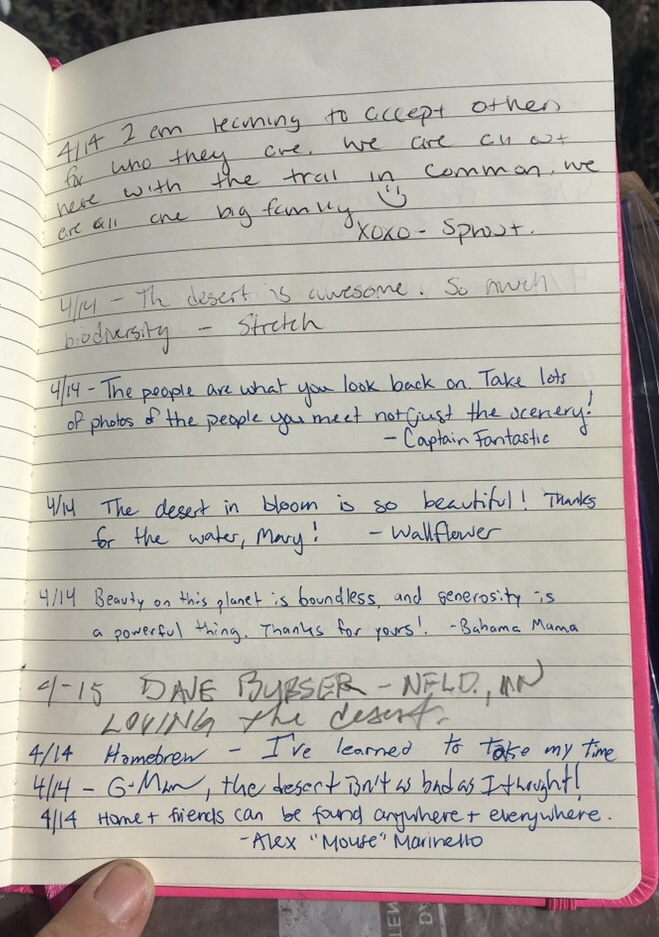 4/14 I am learning to accept others
for who they are. We are all out
here with the trail in common. We
are all one big family
XOXO - Sprout.
4/14 - The desert is awesome. So much
biodiversity - Stretch
4/14 - The people are what you look back on. Take lots
of photos of the people you meet not just the scenery!
- Captain Fantastic
4/14 The desert in bloom is so beautiful! Thanks
for the water, Mary! - Wallflower
4/14 Beauty on this planet is boundless, and generosity is
a powerful thing. Thanks for yours! - Bahama Mama
4-15 DAVE - NFLD.,
LOVING the desert.
4/14 Homebrew - I've learned to take my time
4/14 - G-Man, the desert isn't as bad as I thought!
4/14 Home + friends can be found anywhere + everywhere.
- Alex "Mouse" Marinello